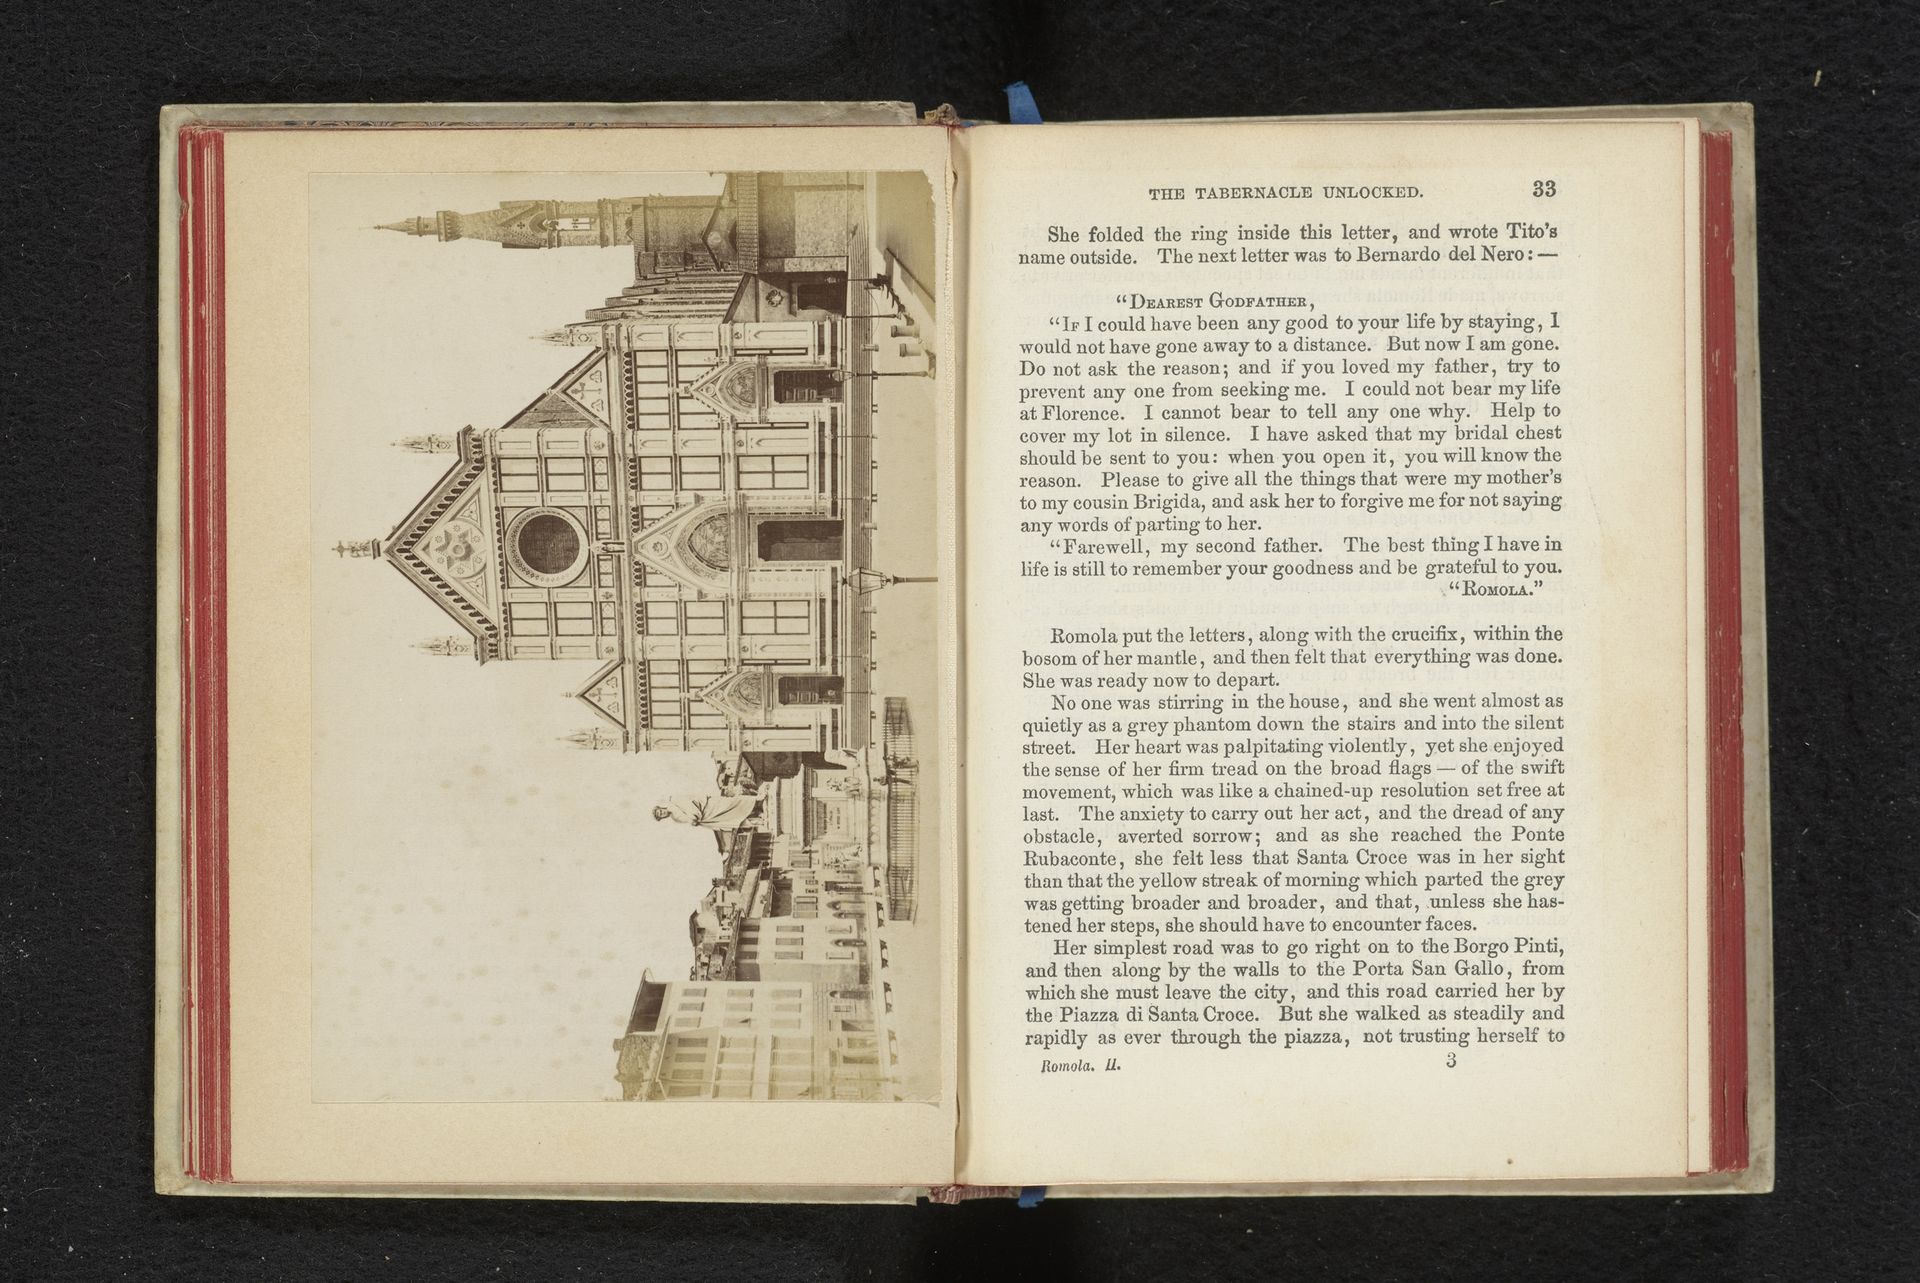 THE TABERNACLE UNLOCKED. 33
She folded the ring inside this letter, and wrote Tito's
name outside. The next letter was to Bernardo del Nero: —
"DEAREST GODFATHER,
"IF I could have been any good to your life by staying, I
would not have gone away to a distance. But now I am gone.
Do not ask the reason; and if you loved my father, try to
prevent any one from seeking me. I could not bear my life
at Florence. I cannot bear to tell any one why. Help to
cover my lot in silence. I have asked that my bridal chest
should be sent to you: when you open it, you will know the
reason. Please to give all the things that were my mother's
to my cousin Brigida, and ask her to forgive me for not saying
any words of parting to her.
"Farewell, my second father. The best thing I have in
life is still to remember your goodness and be grateful to you.
"ROMOLA."
Romola put the letters, along with the crucifix, within the
bosom of her mantle, and then felt that everything was done.
She was ready now to depart.
No one was stirring in the house, and she went almost as
quietly as a grey phantom down the stairs and into the silent
street. Her heart was palpitating violently, yet she enjoyed
the sense of her firm tread on the broad flags — of the swift
movement, which was like a chained-up resolution set free at
last. The anxiety to carry out her act, and the dread of any
obstacle, averted sorrow; and as she reached the Ponte
Rubaconte, she felt less that Santa Croce was in her sight
than that the yellow streak of morning which parted the grey
was getting broader and broader, and that, unless she has-
tened her steps, she should have to encounter faces.
Her simplest road was to go right on to the Borgo Pinti,
and then along by the walls to the Porta San Gallo, from
which she must leave the city, and this road carried her by
the Piazza di Santa Croce. But she walked as steadily and
rapidly as ever through the piazza, not trusting herself to
Romola. II. 3